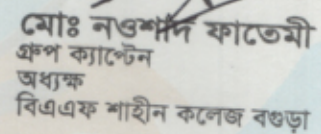 মোঃ নওশাদ ফাতেমী
গ্রুপ ক্যাপ্টেন
অধ্যক্ষ
বিএএফ শাহীন কলেজ বগুড়া